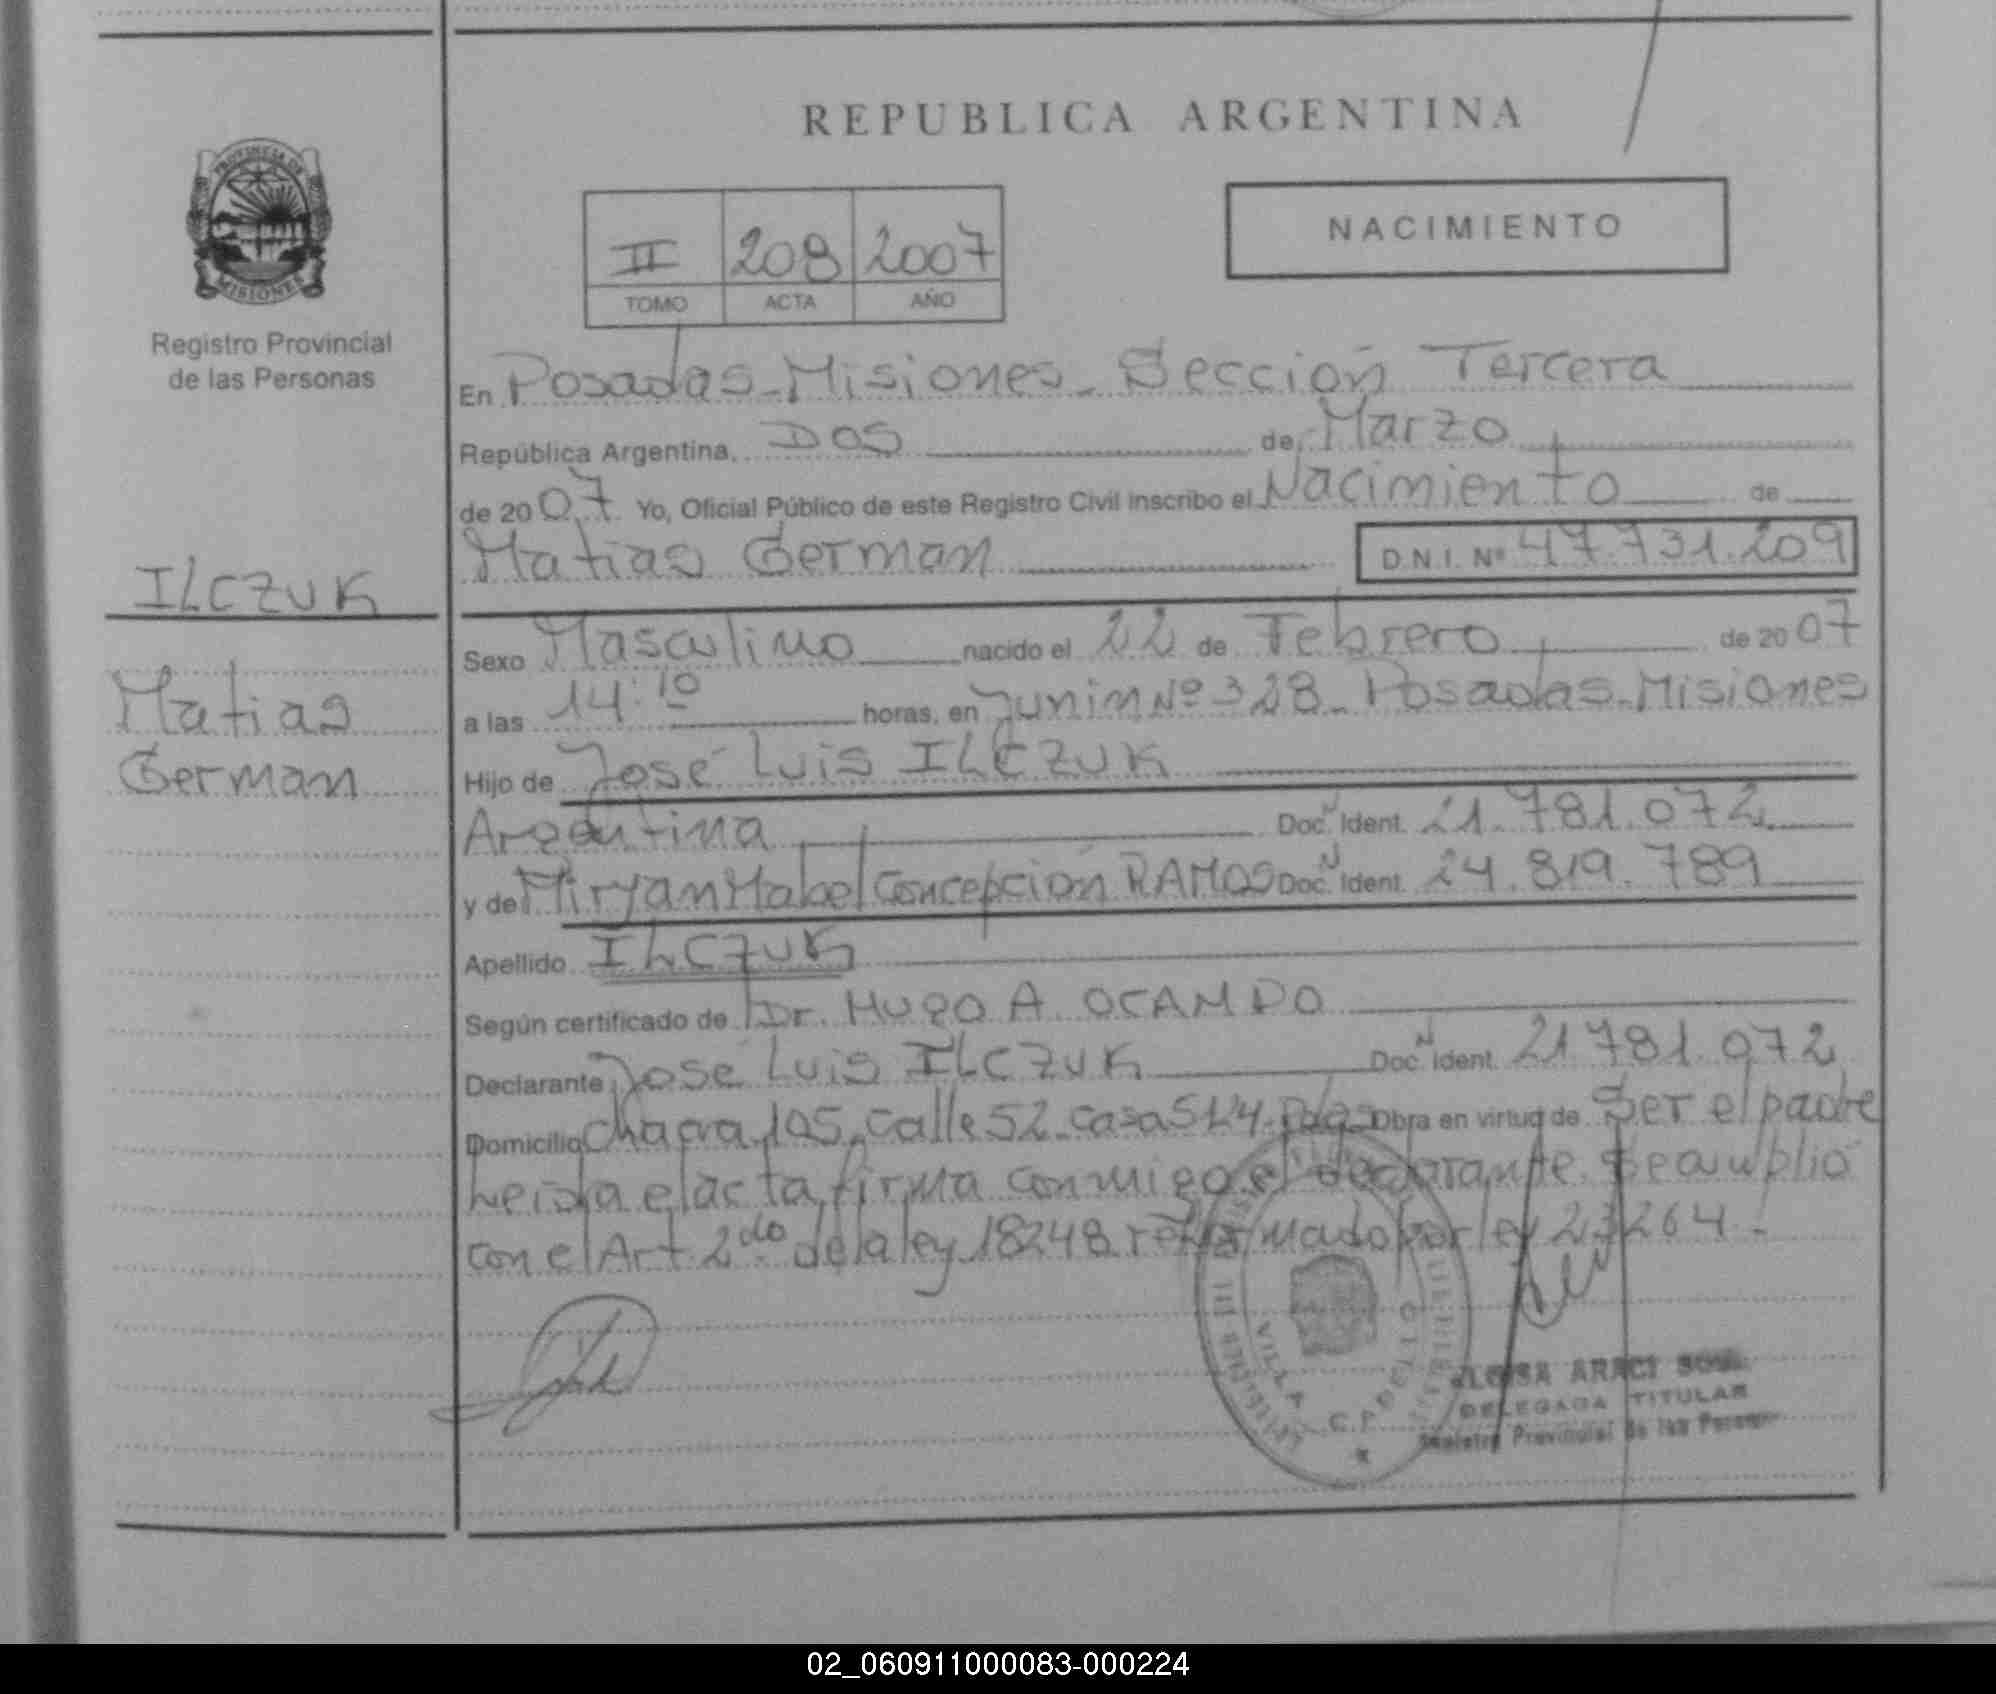 REPUBLICA ARGENTINA
PROVINCIA DE
MISIONES
Registro Provincial
de las Personas
II 208 2007
TOMO ACTA AÑO
NACIMIENTO
En Posadas - Misiones - Sección Tercera
República Argentina, Dos de Marzo
de 2007 Yo, Oficial Público de este Registro Civil inscribo el Nacimiento de
Matias German D.N.I. Nº 47.731.209
ILCZUK
Matias
German
Sexo Masculino nacido el 22 de Febrero de 2007
a las 14:10 horas, en Junin Nº 328 - Posadas - Misiones
Hijo de José Luis ILCZUK
Argentina Doc. N Ident. 21.781.072
y de Miryan Mabel Concepción RAMOS Doc. N Ident. 24.819.789
Apellido ILCZUK
Según certificado de Dr. HUGO A. OCAMPO
Declarante José Luis ILCZUK Doc. N Ident. 21.781.072
Domicilio Chacra 105 - Calle 52 - casa 514 - Pdas Obra en virtud de Ser el padre
Leida el acta firma conmigo el declarante. Se cumplió
con el Art. 2do de la ley 18248 reformado por ley 23264.-
VILLA
ARACI
DELEGADA TITULAR
Registro Provincial de las
02_060911000083-000224